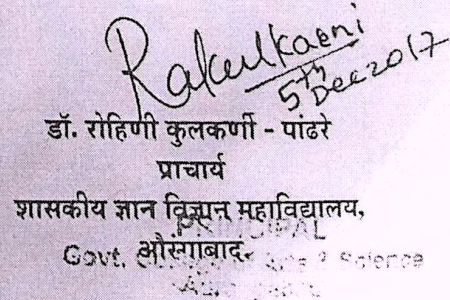 Rakulkaeni
5th Dec 2017
डॉ. रोहिणी कुलकर्णी - पांढरे
प्राचार्य
शासकीय ज्ञान विज्ञान महाविद्यालय,
PRINCIPAL
औरंगाबाद.
Govt. Science